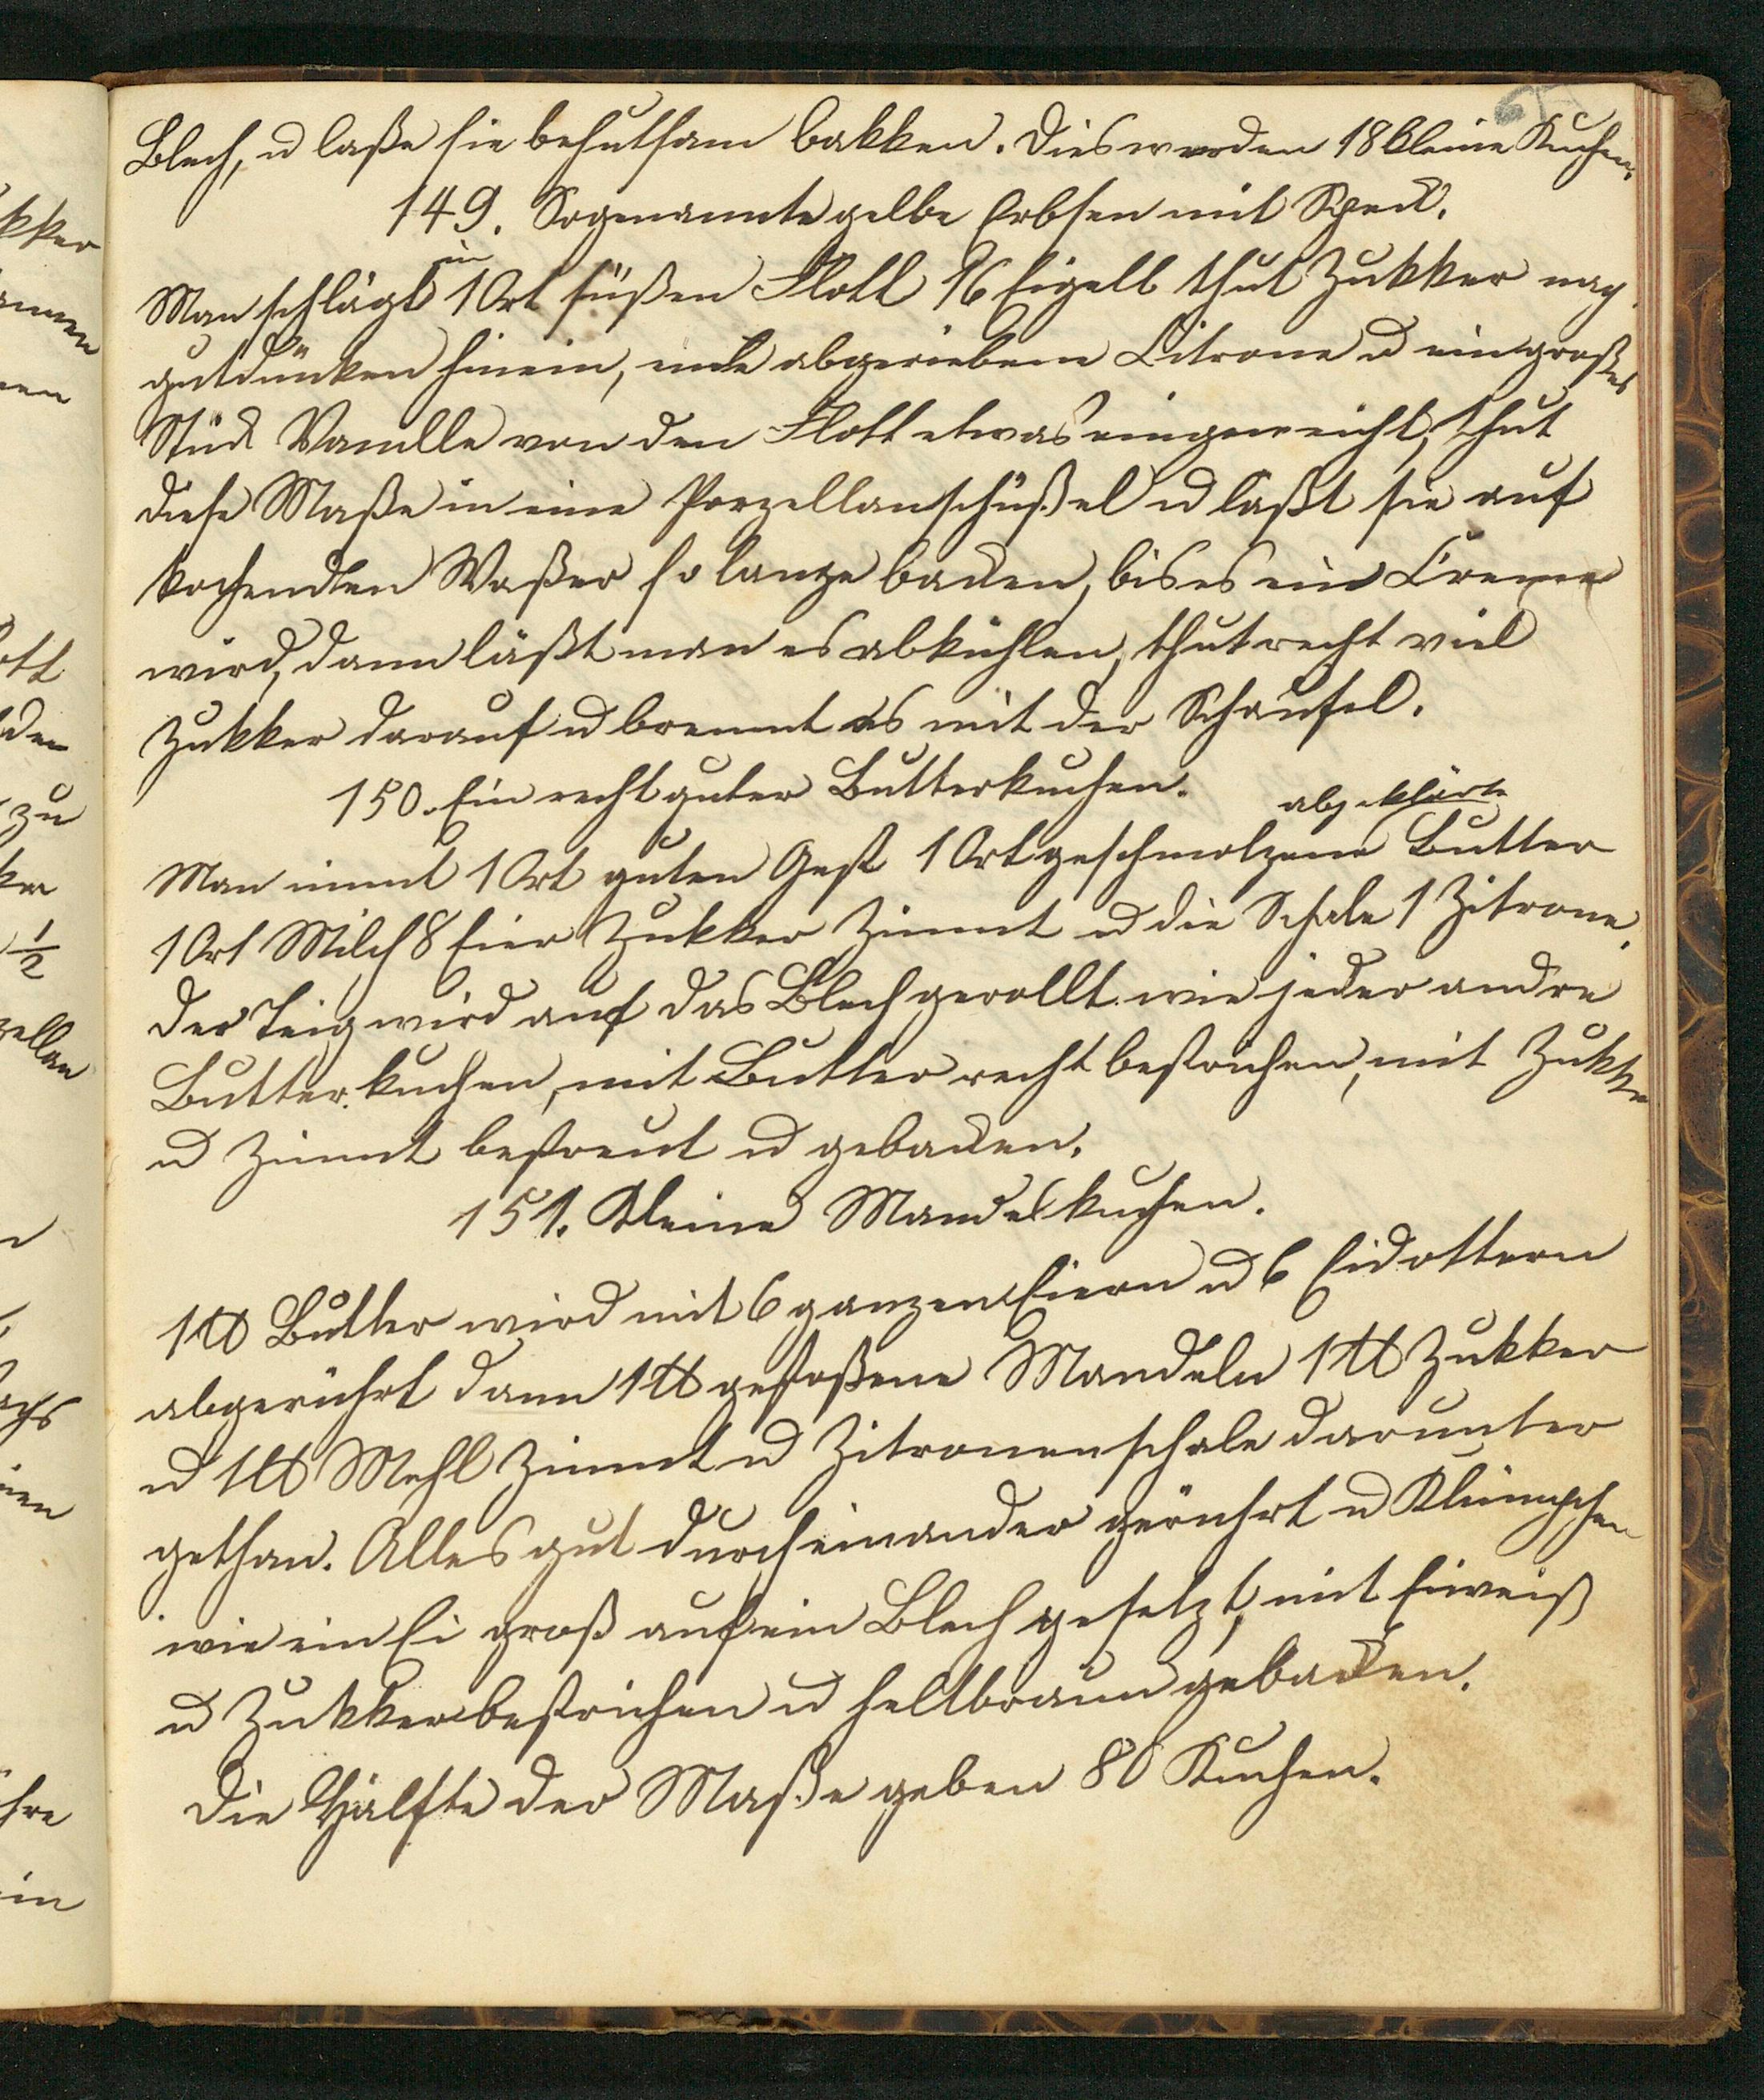 Blech, u laße sie behutsam bakken. Dies werden 18 kleine Kuchen.
149. Sogenannte gelbe Erbsen mit Speck.
in
Man schlägt 1 Ort süßen Flott 16 Eigelb thut Zukker nach
gutdünken hinein, eine abgeriebene Citrone u ein großes
Stück Vanille von den Flott etwas eingeweicht, thut
diese Maße in eine Porzellanschüßel u laßt sie auf
kochendten Waßer so lange backen, bis es ein Creme
wird, dann läßt man es abkühlen, thut recht viel
Zukker darauf u brennt es mit der Schaufel.
150. Ein recht guter Butterkuchen.
abgeklärte
Man nimmt 1 Ort guten Gest 1 Ort geschmolzene Butter
1 Ort Milch 8 Eier Zukker Zimmt u die Schale 1 Zitrone.
Der Teig wird auf das Blech gerollt wie jeder andre
Butterkuchen, mit Butter recht bestrichen, mit Zukker
u Zimmt bestreut u gebacken.
151. Kleine Mandelkuchen.
1 ℔ Butter wird mit 6 ganzen Eiern u 6 Eidottern
abgerührt dann 1 ℔ gestoßene Mandeln 1 ℔ Zukker
u 1 ℔ Mehl Zimmt u Zitronenschale darunter
gethan. Alles gut durcheinander gerührt u Klümpchen
wie ein Ei groß auf ein Blech gesetzt, mit Eiweiß
u Zukker bestrichen u hellbraun gebacken.
Die Hälfte der Maße geben 80 Kuchen.